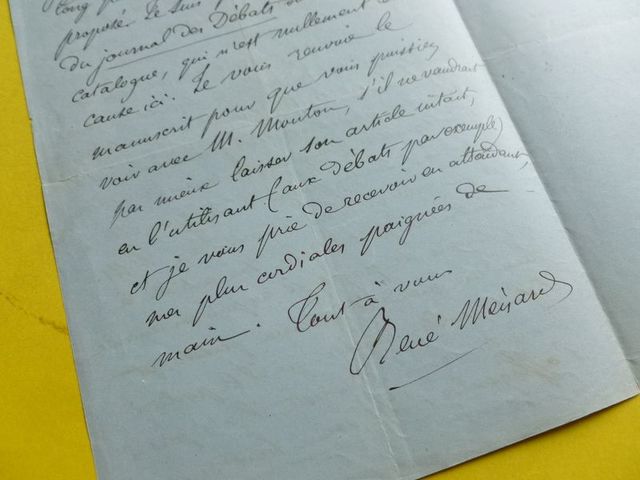 long
proposée. Je suis
du journal des Débats
catalogue, qui n'est nullement en
cause ici. Je vous renvoie le
manuscrit pour que vous puissiez
voir avec M. Monton, s'il ne vaudrait
pas mieux laisser son article intact,
en l'utilisant (aux débats par exemple)
et je vous prie de recevoir en attendant,
mes plus cordiales poignées de
main. Tout à vous
René Ménard